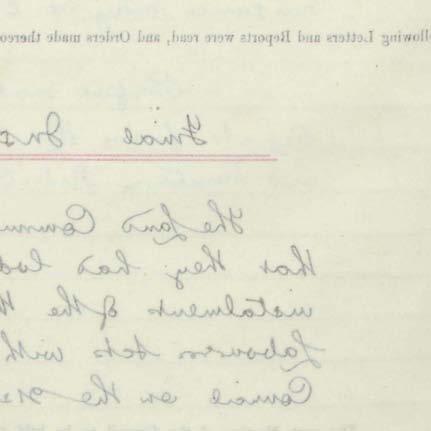 ollowing Letters and Reports were read, and Orders made thereo
Final Ins
The Land Commi
that they had lod
instalment of the
Labourers Acts with
Council on the